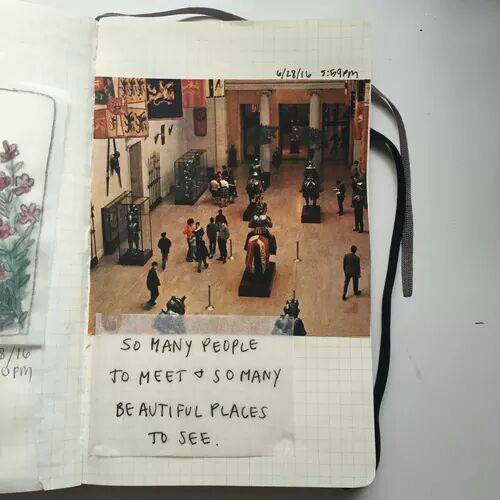 6/28/16 5:59PM
SO MANY PEOPLE
TO MEET & SO MANY
BEAUTIFUL PLACES
TO SEE.
8/16
PM